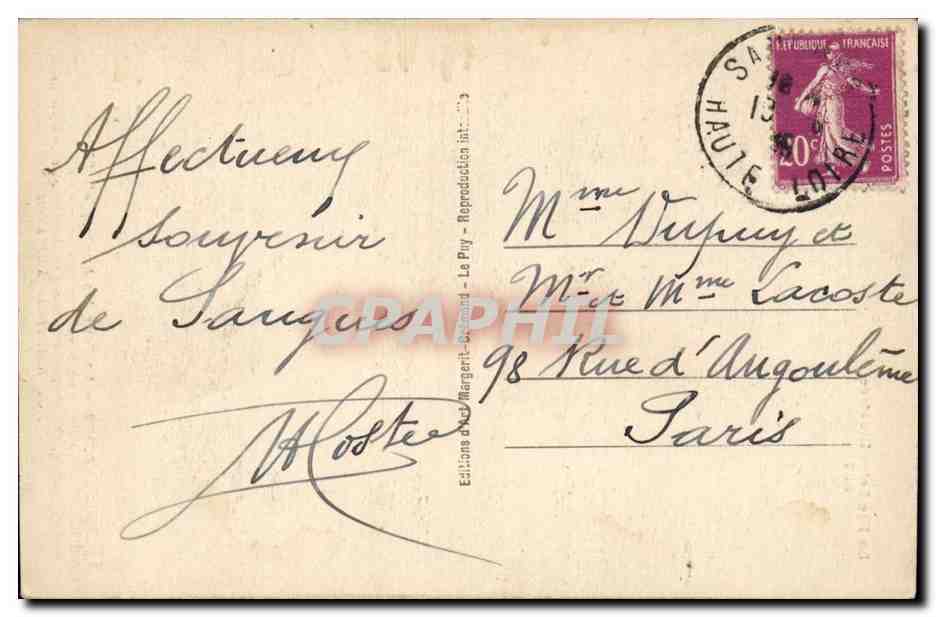 Affectueux
souvenir
de Saugues
Editions d'Art Margerit-Brémond - Le Puy - Reproduction
CARTAPHIL
REPUBLIQUE FRANÇAISE
20c
POSTES
HAUTE LOIRE
Mme Dupuy et
Mr et Mme Lacoste
98 Rue d'Angoulême
Paris